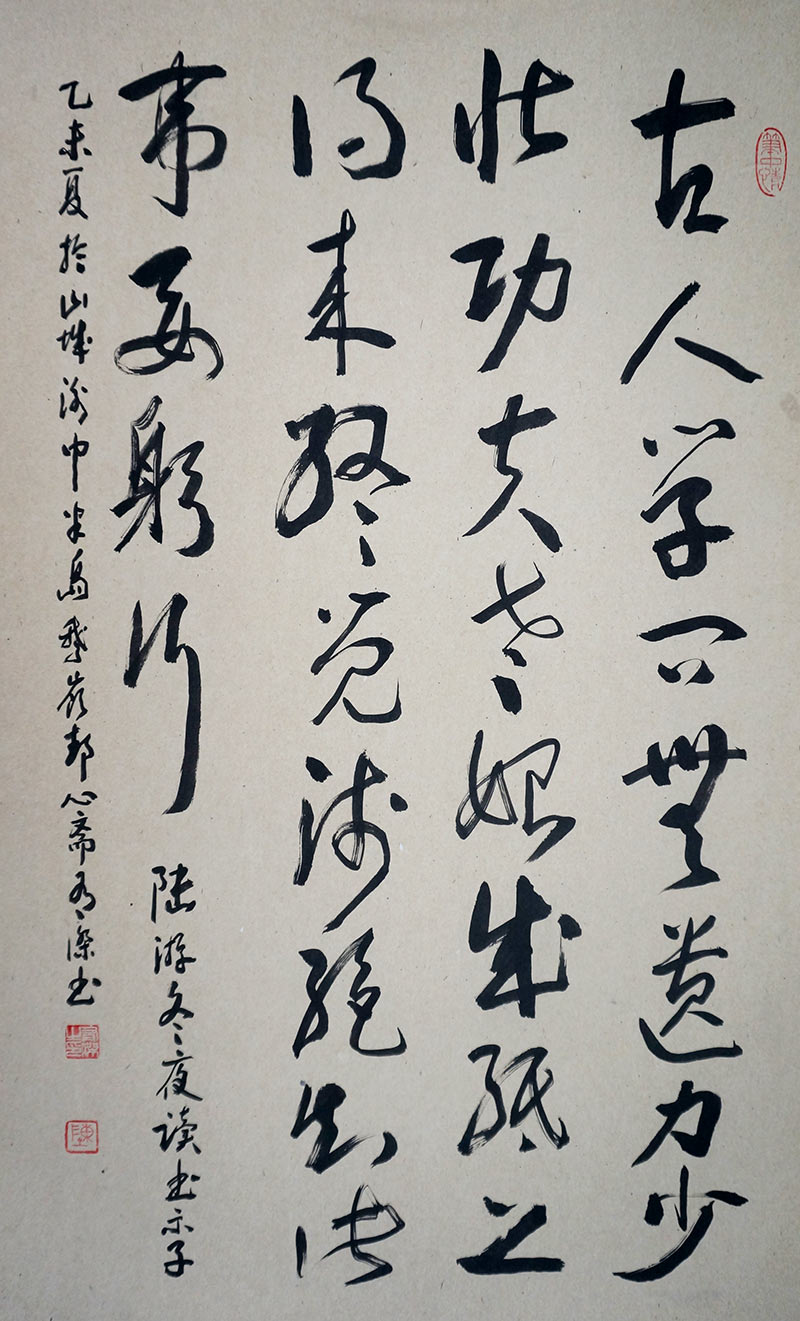 古人学问無遗力少
壮功夫老始成纸上
得来终觉浅绝知此
事要躬行
陆游冬夜读书示子
乙未夏於山城渝中半岛鹅岭静心斋书